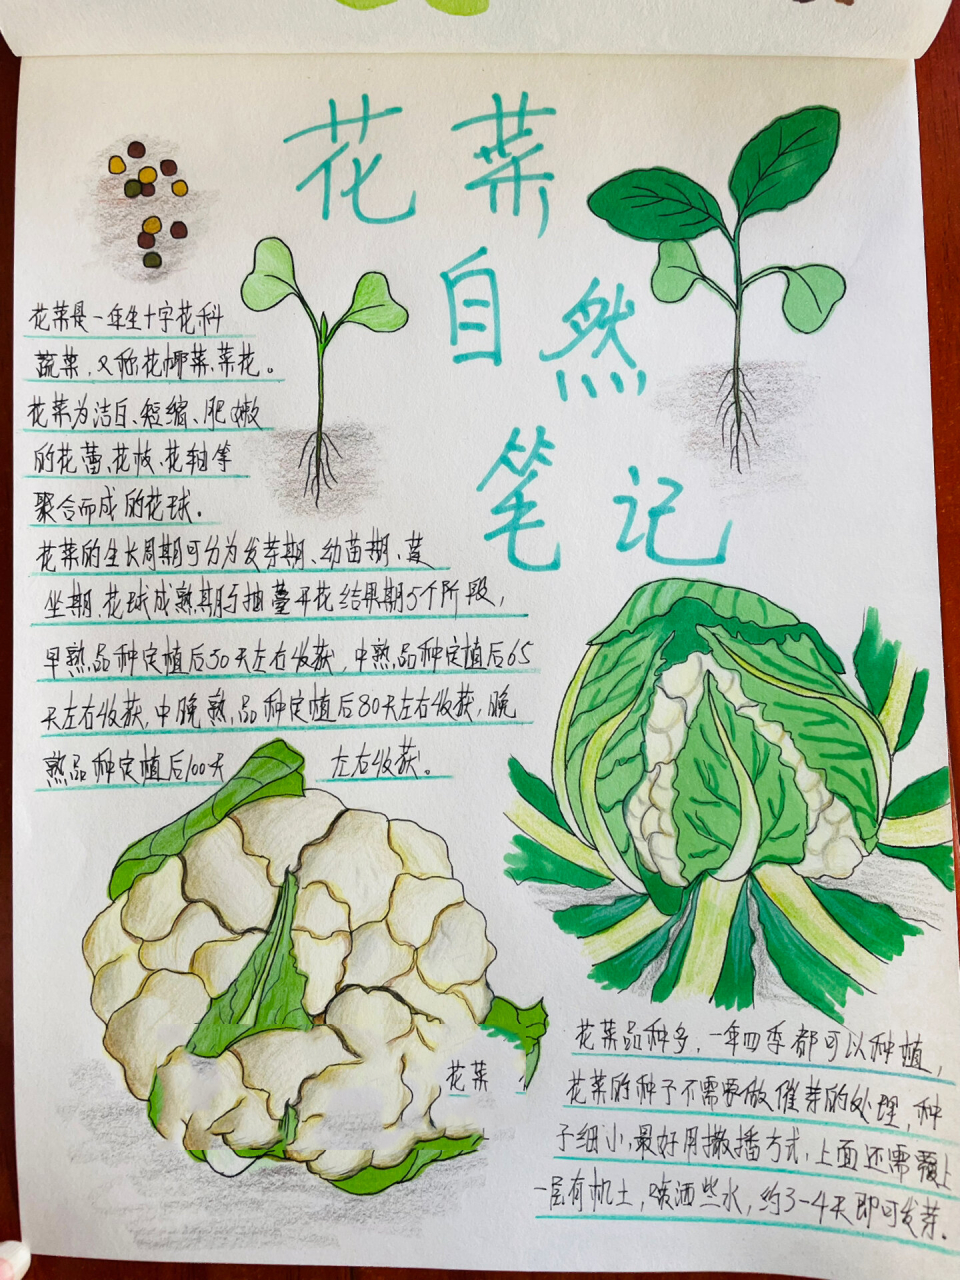 花菜
自然
笔记
花菜是一年生十字花科
蔬菜，又称花椰菜、菜花。
花菜为洁白、短缩、肥嫩
的花蕾、花枝、花轴等
聚合而成的花球。
花菜的生长周期可分为发芽期、幼苗期、莲
坐期、花球成熟期与抽薹开花结果期5个阶段，
早熟品种定植后50天左右收获，中熟品种定植后65
天左右收获，中晚熟，品种定植后80天左右收获，晚
熟品种定植后100天 左右收获。
花菜，
花菜品种多，一年四季都可以种植，
花菜的种子不需要做催芽的处理，种
子细小，最好用撒播方式，上面还需覆上
一层有机土，喷洒些水，约3-4天即可发芽.